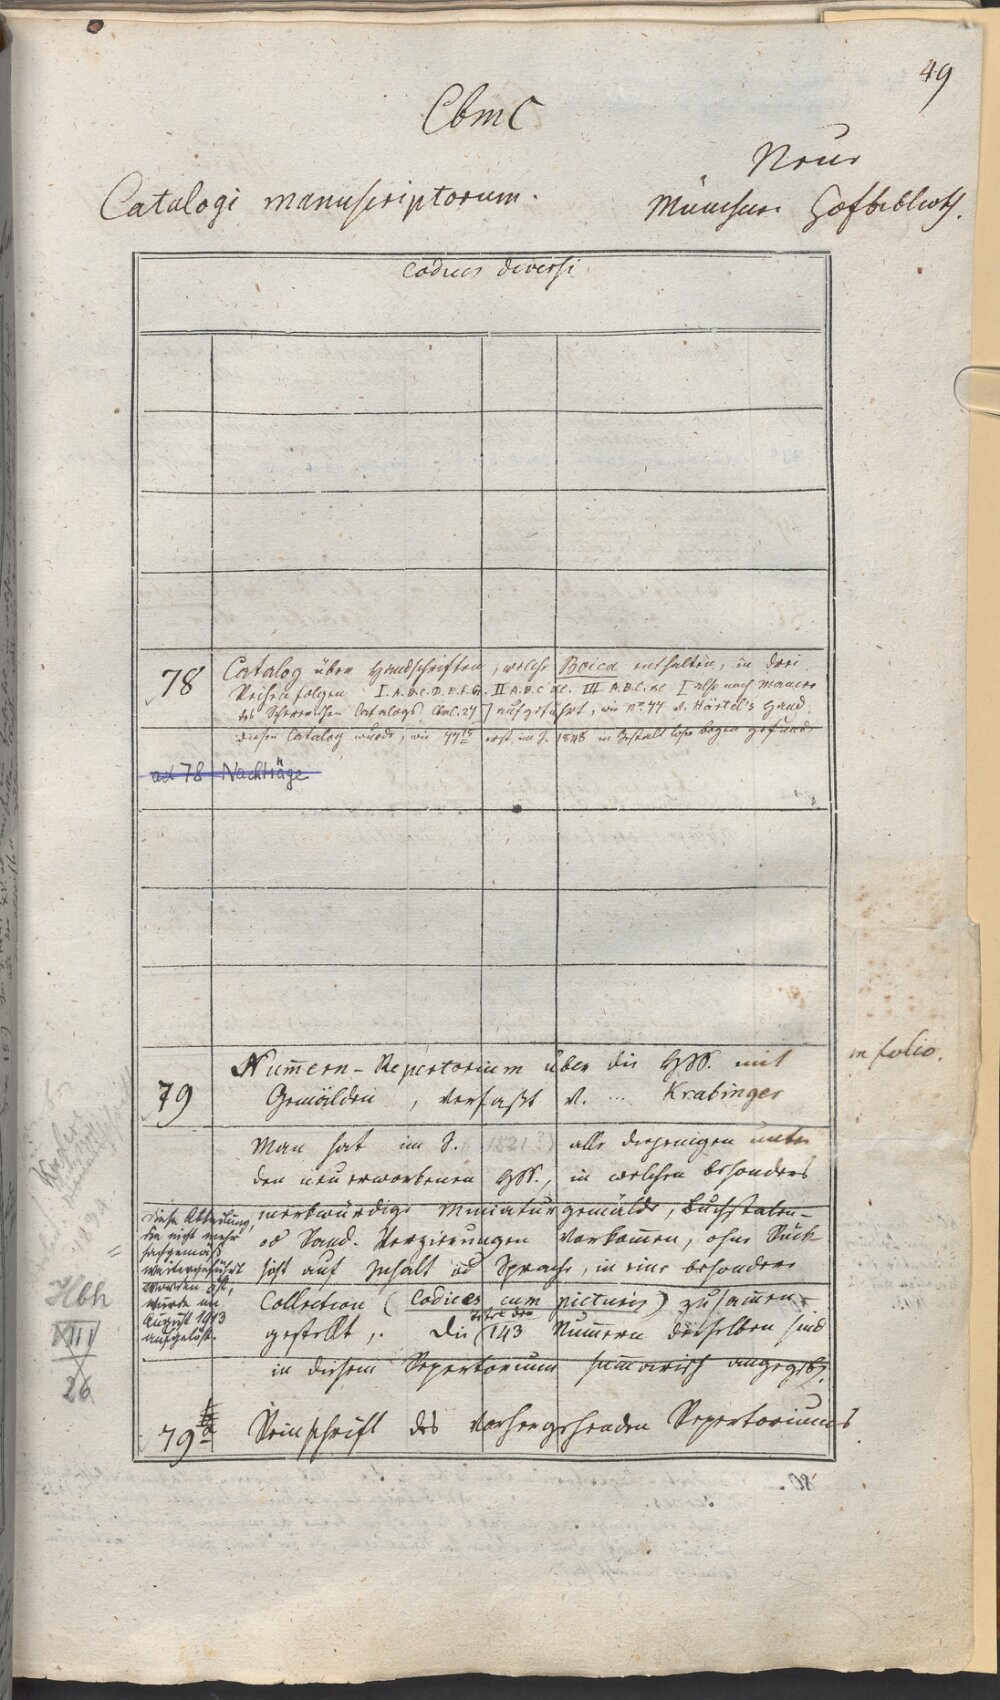 49
Cbm C
Neue
Catalogi manuscriptorum.
Münchner Hofbiblioth.
Codices diversi
78 Catalog über Handschriften, welche Boica enthalten, in drei
Reihenfolgen I. A. B. C. D. E. F. G. II A. B. C &c. III. A. B. C. &c [also nach Manier
des Catalogs Cbm C. 27] aufgeführt, wie n° 77 v. Härtel's Hand.
Dieser Catalog wurde, wie 77 erst im J. 1848 in Gestalt loser bogen gefund
ad 78 Nachträge
79 Num̅ern-Repertorium über die HSS. mit
in folio.
Gemälden, verfaßt v. ... Krabinger
Man hat im J. (1821?) alle diejenigen unter
den neuerworbenen HSS., in welchen besonders
merkwürdige Miniaturgemälde, Buchstaben-
od Rand-Verzierungen vorkom̅en, ohne Rück-
sicht auf Inhalt od Sprache, in eine besondere
Collection (Codices cum picturis) zusam̅en-
gestellt. Die 143 Num̅ern derselben sind
in diesem Repertorium sum̅arisch angegeb.
Diese Abteilung,
die nicht mehr
sachgemäß
weitergeführt
worden ist,
wurde im
August 1913
aufgelöst.
Hbh
VIII
26
79a Reinschrift des vorhergehenden Repertoriums